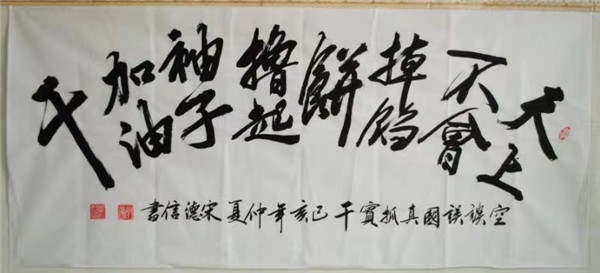 天上不會掉餡餅擼起袖子加油干
空談誤國真抓實干己亥年仲夏宋德信書